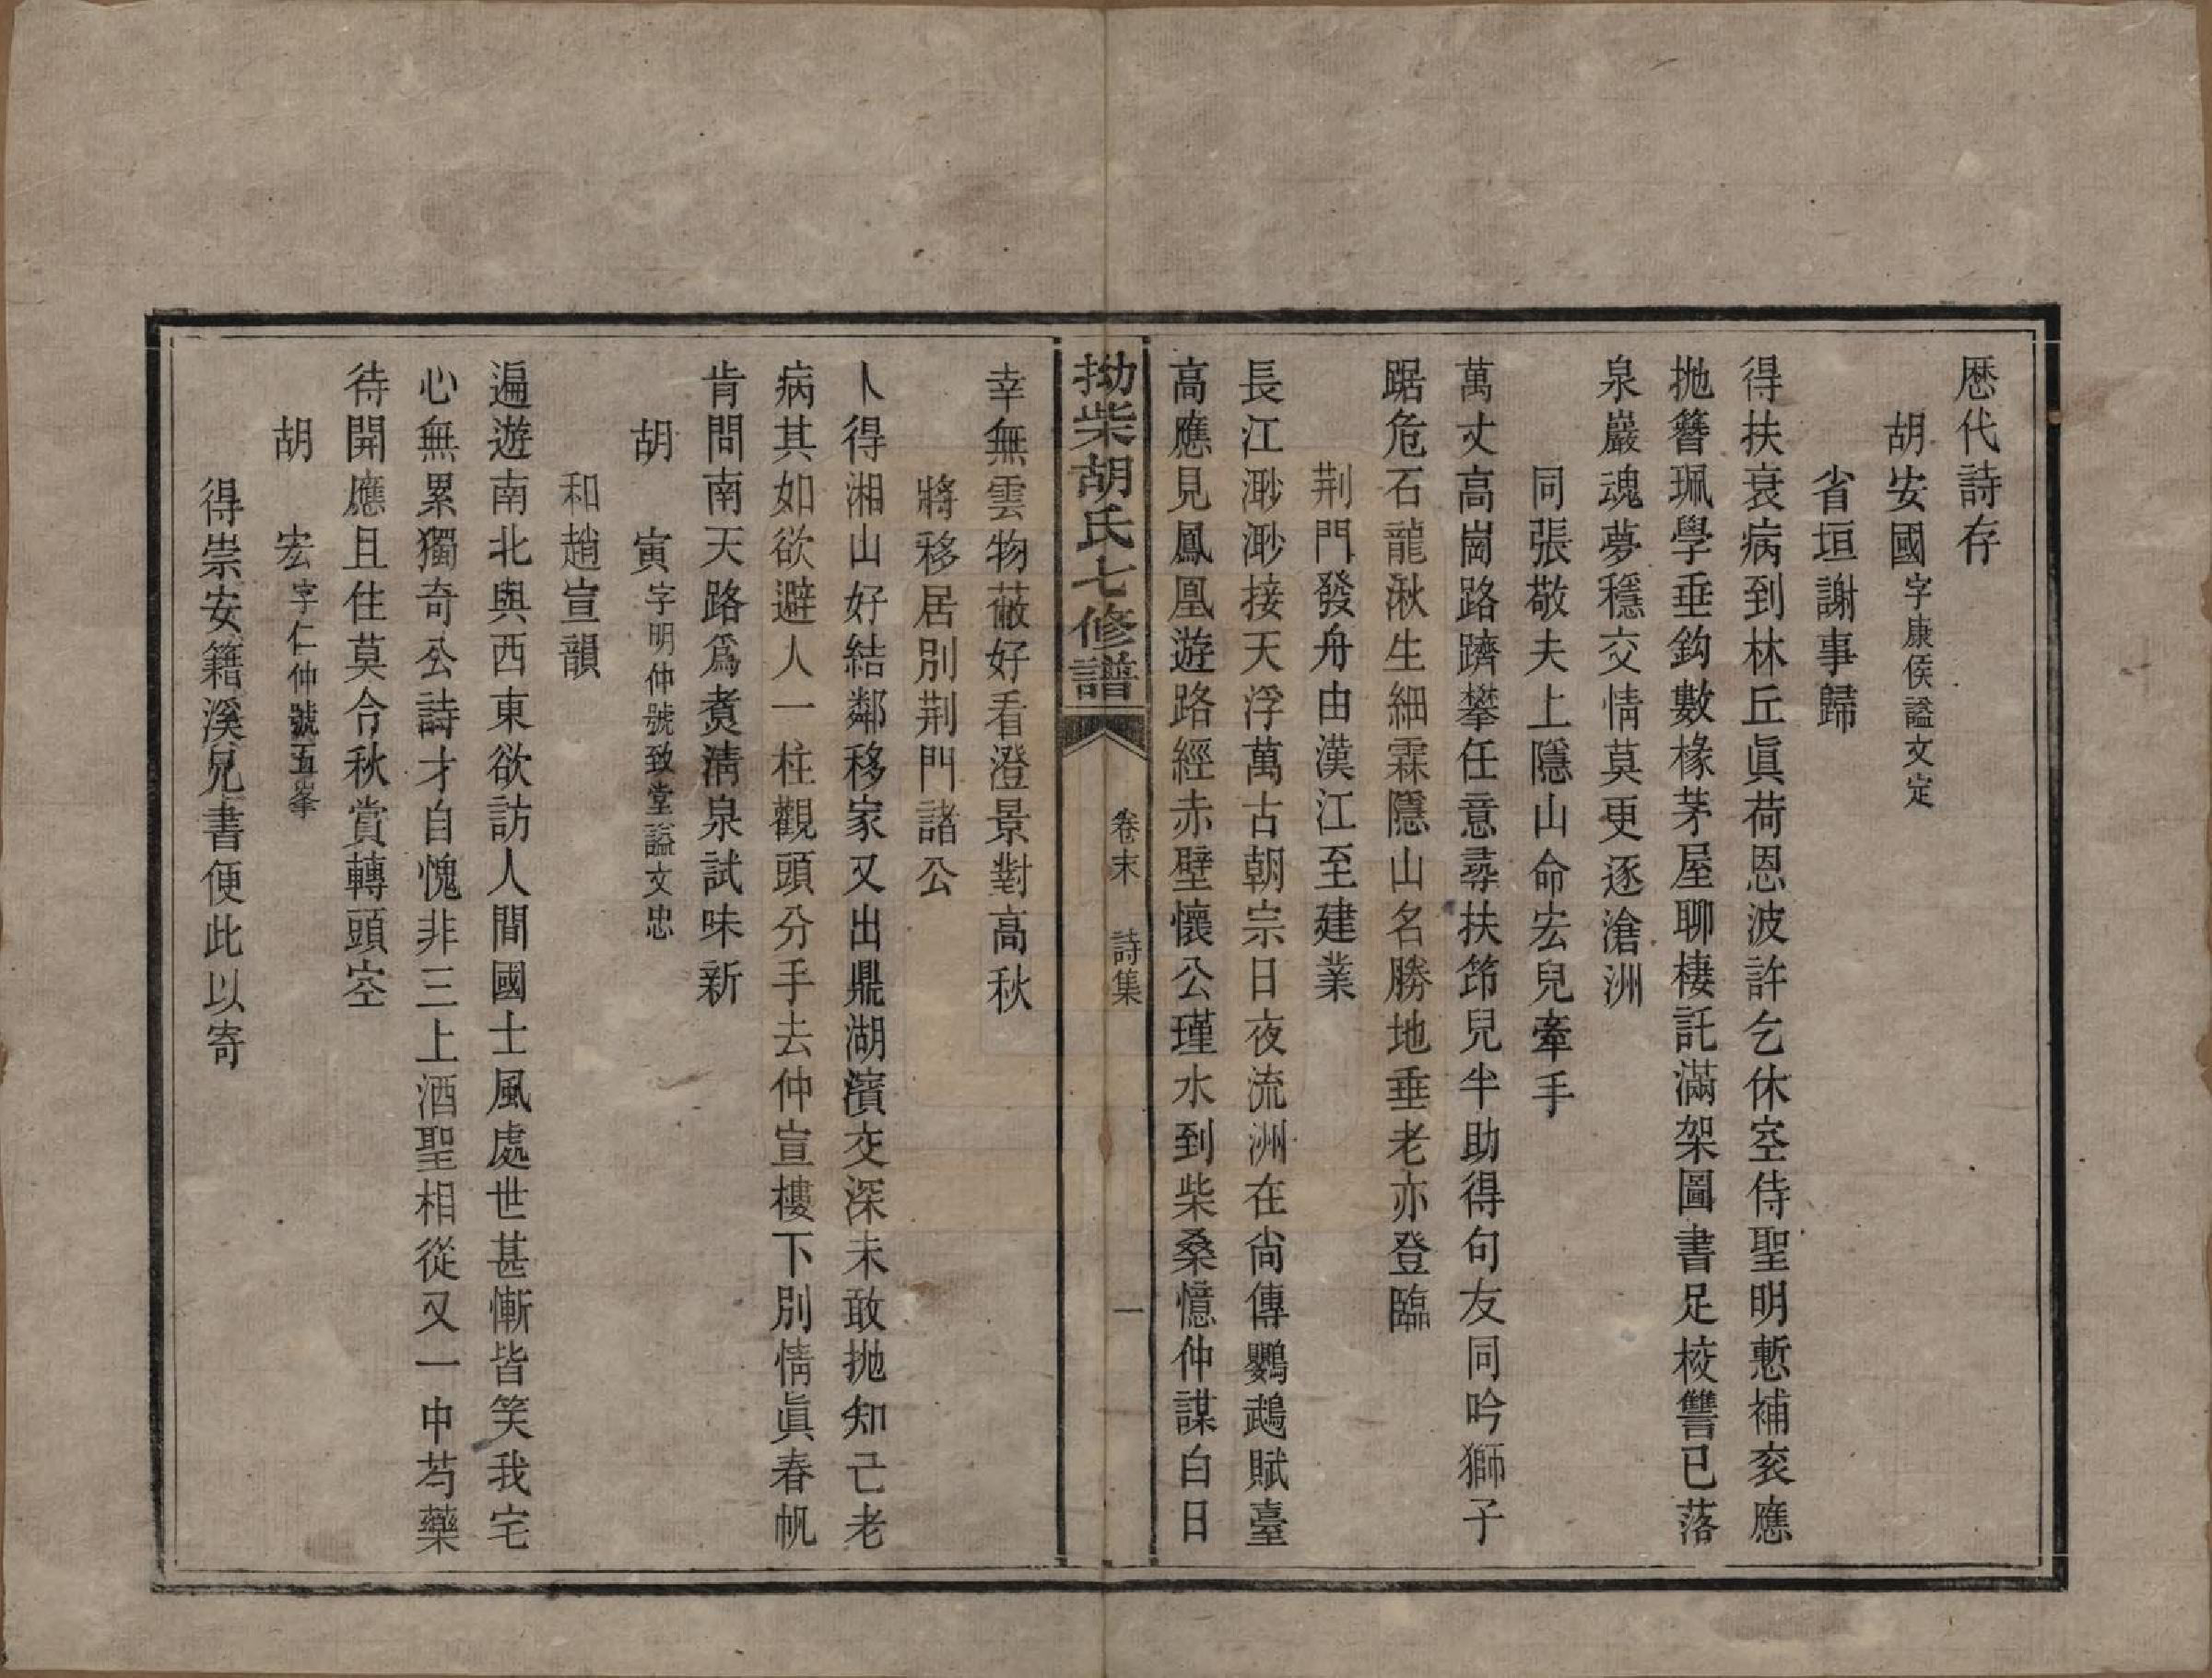 歷代詩存
胡安國字康侯謚文定
省垣謝事歸
得扶衰病到林丘眞荷恩波許乞休空侍聖明慙補衮應
拋簪珮學垂鈎數椽茅屋聊棲託滿架圖書足校讐已落
泉巖魂夢穩交情莫更逐滄洲
同張敬夫上隱山命宏兒牽手
萬丈高崗路躋攀任意尋扶笻兒半助得句友同吟獅子
踞危石龍湫生細霖隱山名勝地垂老亦登臨
荆門發舟由漢江至建業
長江渺渺接天浮萬古朝宗日夜流洲在尙傳鸚鵡賦臺
高應見鳳凰遊路經赤壁懷公瑾水到柴桑憶仲謀白日
拗柴胡氏七修譜 卷末 詩集 一
幸無雲物蔽好看澄景對高秋
將移居別荆門諸公
卜得湘山好結鄰移家又出鼎湖濱交深未敢拋知己老
病其如欲避人一柱觀頭分手去仲宣樓下別情眞春帆
肯問南天路爲煑淸泉試味新
胡 寅字明仲號致堂謚文忠
和趙宣韻
遍遊南北與西東欲訪人間國士風處世甚慚皆笑我宅
心無累獨奇公詩才自愧非三上酒聖相從又一中芍藥
待開應且住莫令秋賞轉頭空
胡 宏字仁仲號五峯
得崇安籍溪兄書便此以寄